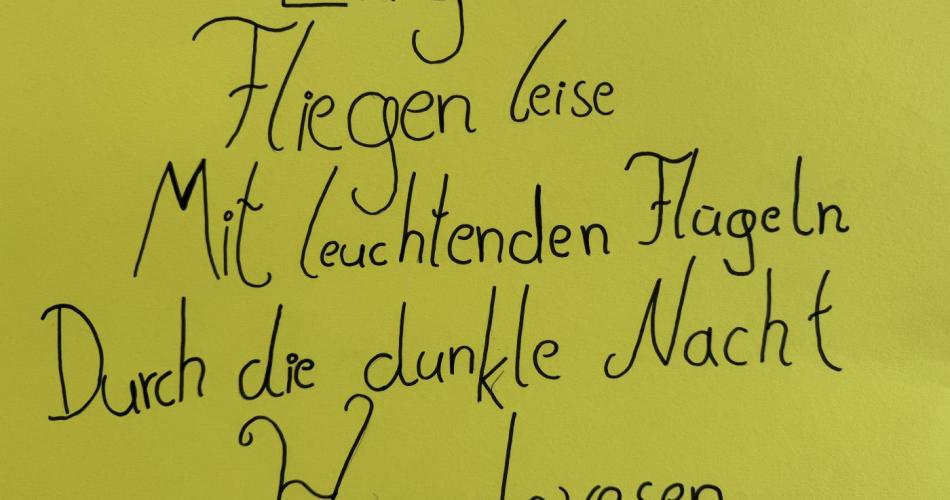 Fliegen leise
Mit leuchtenden Flügeln
Durch die dunkle Nacht